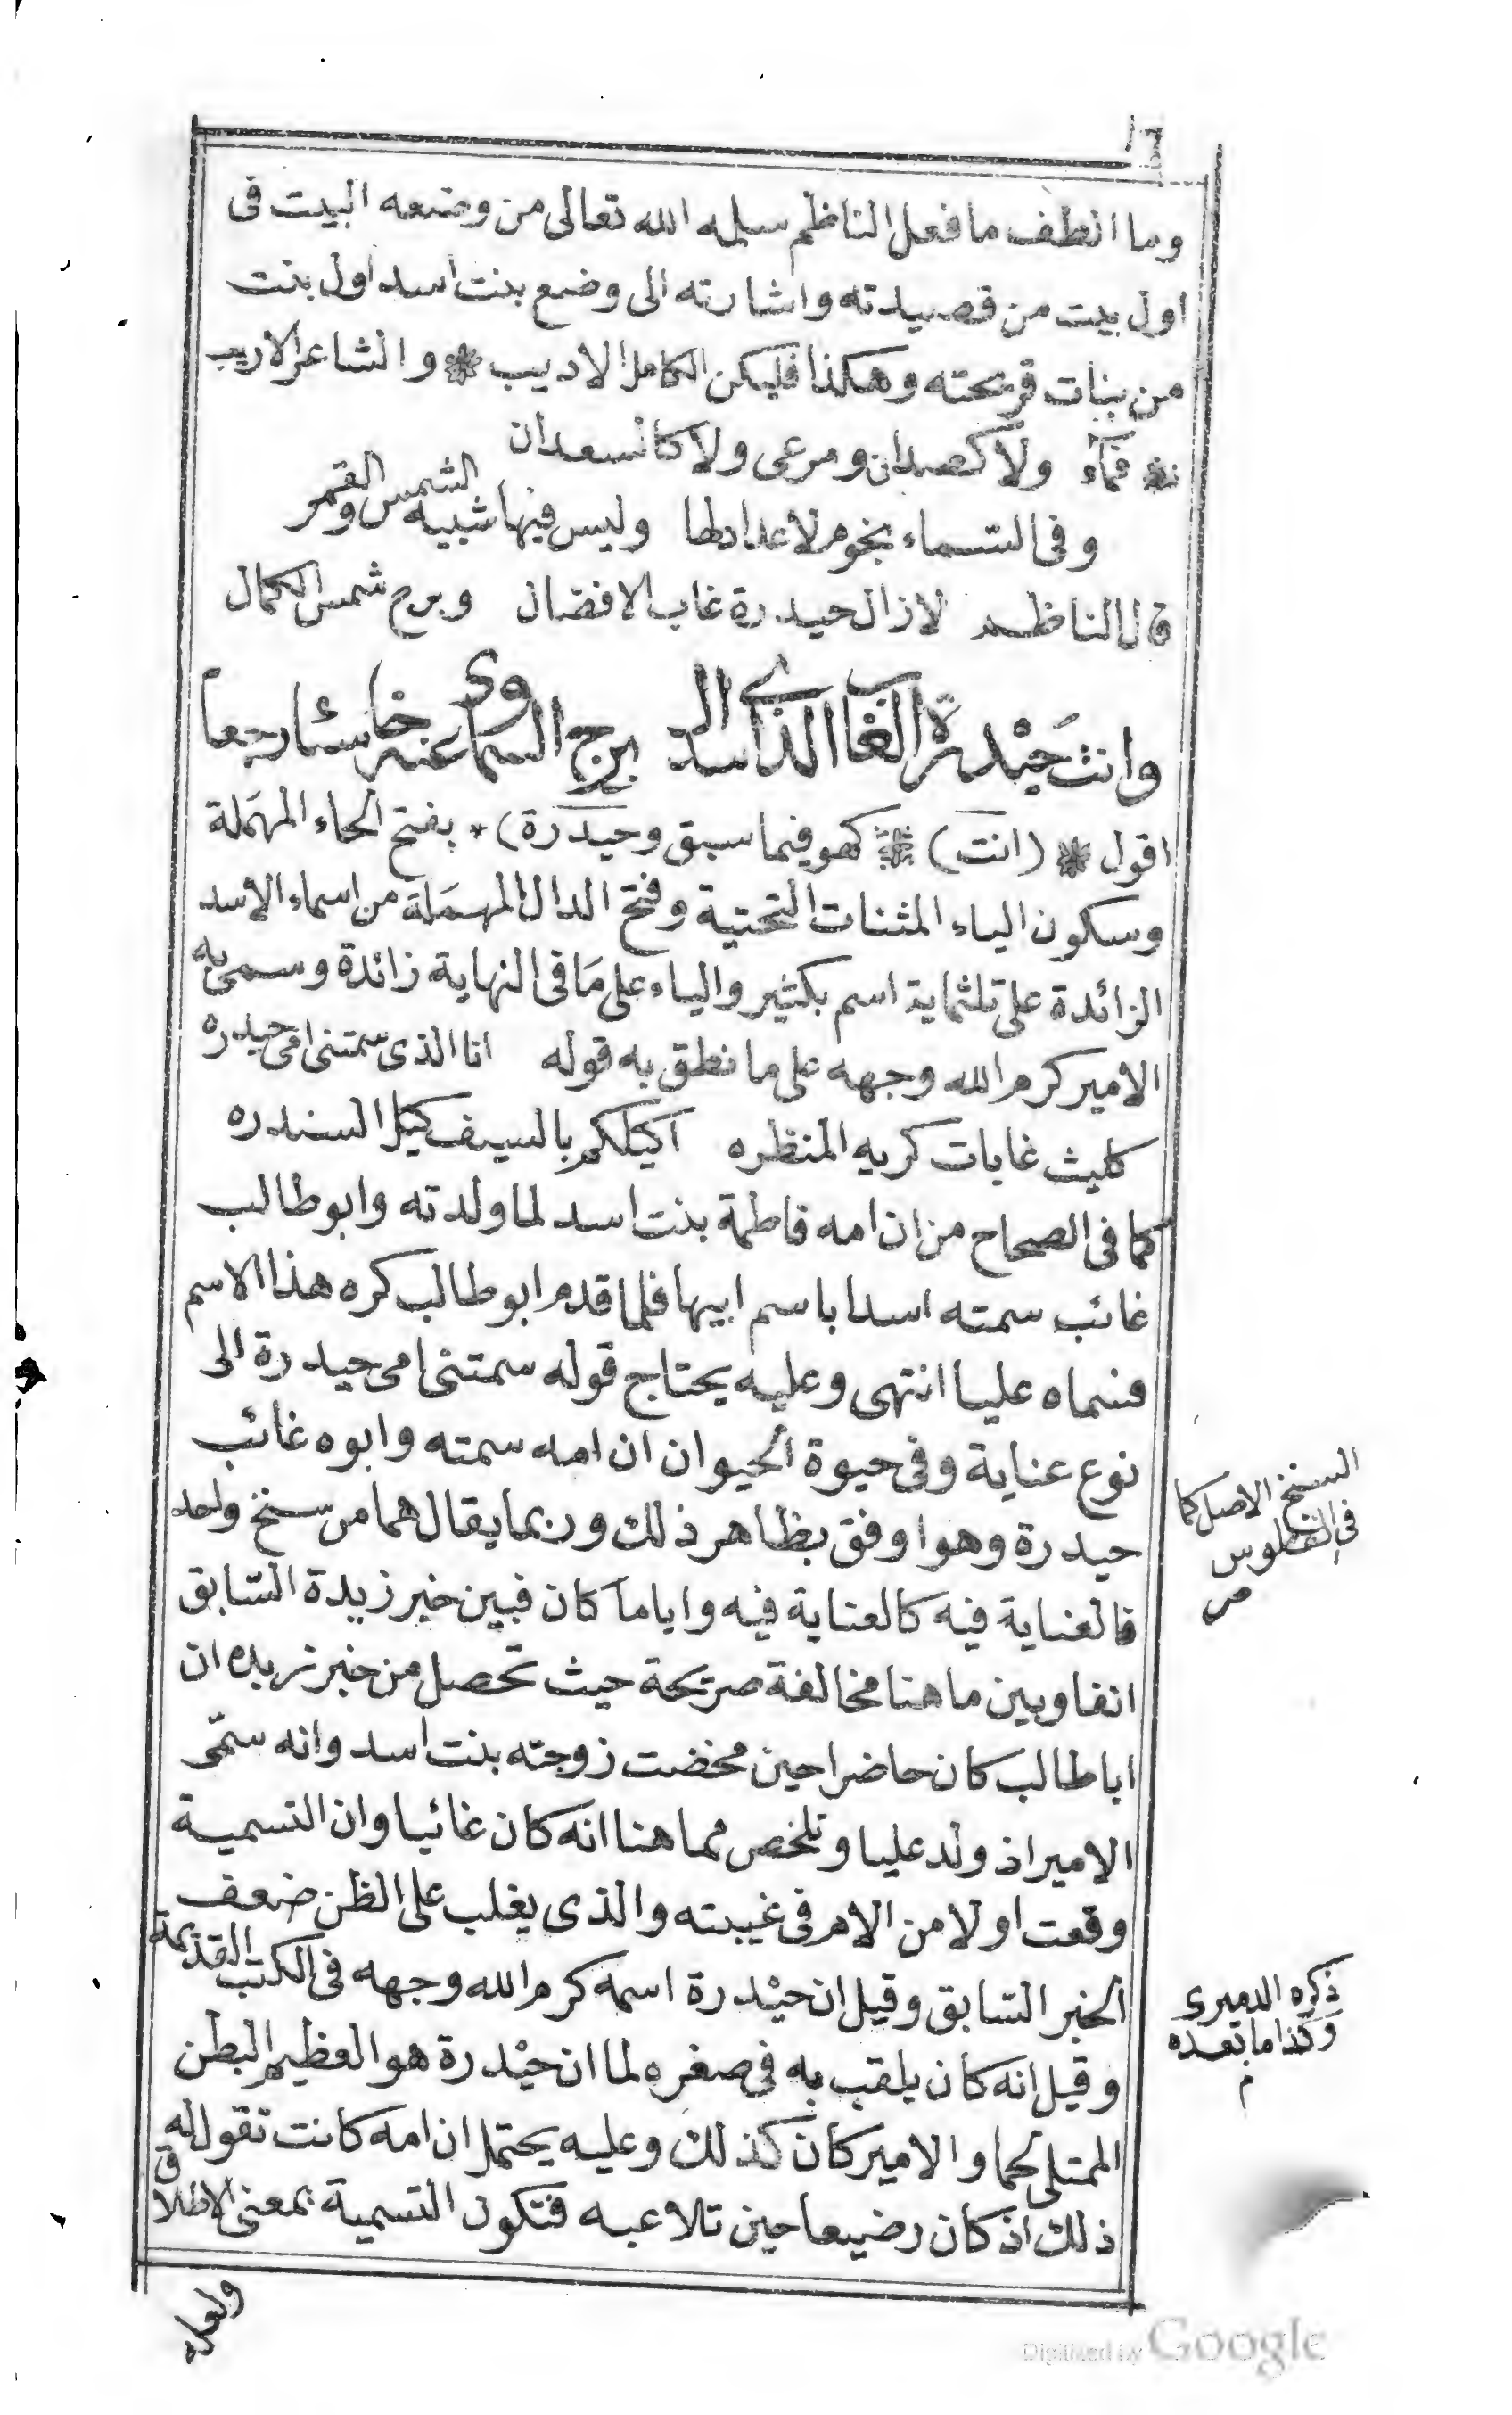 ١٦
وما الطف ما فعل الناظم سلمه الله تعالى من وضعه البيت فى
اول بيت من قصيدته واشارته الى وضع بنت اسد اول بنت
من بنات قريحته وهكذا فليكن الكامل الاديب ❋ والشاعر الاريب
❋ فمآء ولا كصدان ومرعى ولا كالسعدان
وفى السماء نجوم لا عداد لها وليس فيها شبيه الشمس والقمر
قال الناظم لا زال حيدرة غاب الافضال وبرج شمس الكمال
وانت حَيْدرة الغاب الذى اسد ال برج السماوى عنه خاسئا رجعا
اقول ❋ (انت) ❋ كهو فيما سبق وحيدرة) * بفتح الحاء المهملة
وسكون الياء المثنات التحتية وفتح الدال المهملة من اسماء الاسد
الزائدة على ثلثماية اسم بكثير والياء على مَا فى النهاية زائدة وسمى به
الامير كرم الله وجهه على ما نطق به قوله انا الذى سمتنى امى حيدره
كليث غابات كريه المنظره اكيلكم بالسيف كيل السندره
كما فى الصحاح من ان امه فاطمة بنت اسد لما ولدته وابو طالب
غائب سمته اسدا باسم ابيها فلما قدم ابو طالب كره هذا الاسم
فسماه عليا انتهى وعليه يحتاج قوله سمتنى امى حيدرة الى
نوع عناية وفى حيوة الحيوان ان امه سمته وابوه غائب
حيدرة وهو اوفق بظاهر ذلك وربما يقال هما من سنخ واحد
فالعناية فيه كالعناية فيه واياما كان فبين خبر زيدة السابق
انفا وبين ما هنا مخالفة صريحة حيث تحصل من خبر زيده ان
ابا طالب كان حاضرا حين مخضت زوجته بنت اسد وانه سمّى
الامير اذ ولد عليا وتلخص مما هنا انه كان غائبا وان التسمية
وقعت اولا من الام فى غيبته والذى يغلب على الظن ضعف
الخبر السابق وقيل ان حيْدرة اسمه كرم الله وجهه فى الكتب القديمة
وقيل انه كان يلقب به فى صغره لما ان حيْدرة هو العظيم البطن
الممتلى لحما والامير كان كذلك وعليه يحتمل ان امه كانت تقول له
ذلك اذ كان رضيعا حين تلاعبه فتكون التسمية بمعنى الاطلاق
ولعله
السنخ الاصل كما
فى القاموس
ذكره الدميرى
وكذا ما بعده
م
Digitized by Google